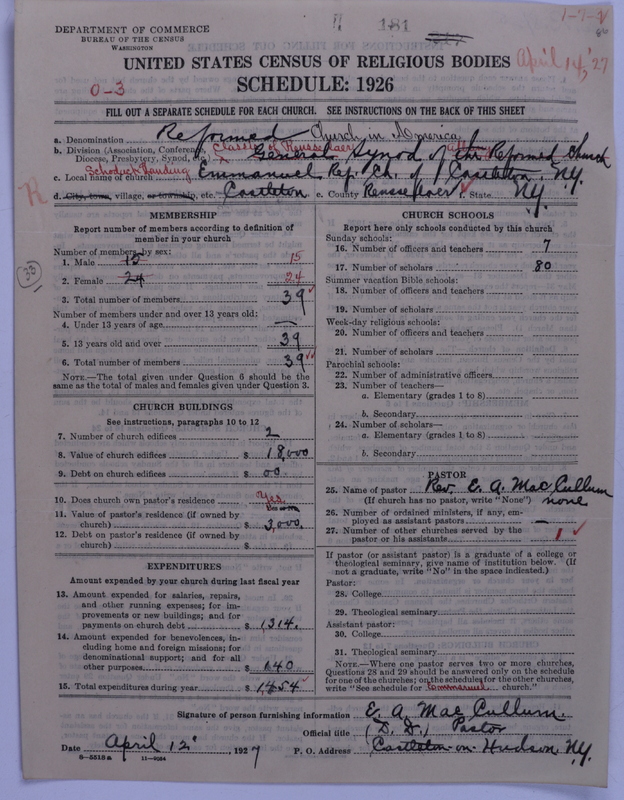 181
1-7-2
DEPARTMENT OF COMMERCE
BUREAU OF THE CENSUS
WASHINGTON
UNITED STATES CENSUS OF RELIGIOUS BODIES
April 14, '27
SCHEDULE: 1926
0-3
FILL OUT A SEPARATE SCHEDULE FOR EACH CHURCH. SEE INSTRUCTIONS ON THE BACK OF THIS SHEET
a. Denomination Reformed Church in America
b. Division (Association, Conference, Classis of Rensselaer
Diocese, Presbytery, Synod, etc.) General Synod of the Reformed Church
c. Local name of church Schodack Landing Emmanuel Ref. Ch. of Castleton, N.Y.
d. City, town, village, or township, etc. Castleton e. County Rensselaer f. State N.Y.
MEMBERSHIP
Report number of members according to definition of
member in your church
Number of members by sex:
1. Male 15 15
2. Female 24 24
3. Total number of members 39
Number of members under and over 13 years old:
4. Under 13 years of age —
5. 13 years old and over 39
6. Total number of members 39
33
NOTE.—The total given under Question 6 should be the
same as the total of males and females given under Question 3.
CHURCH BUILDINGS
See instructions, paragraphs 10 to 12
7. Number of church edifices 2
8. Value of church edifices $ 18,000
9. Debt on church edifices $ 00
10. Does church own pastor's residence Yes
11. Value of pastor's residence (if owned by
church) $ 3,000
12. Debt on pastor's residence (if owned by
church) $
EXPENDITURES
Amount expended by your church during last fiscal year
13. Amount expended for salaries, repairs,
and other running expenses; for im-
provements or new buildings; and for
payments on church debt $ 1,314.
14. Amount expended for benevolences, in-
cluding home and foreign missions; for
denominational support; and for all
other purposes $ 140
15. Total expenditures during year $ 1,454
CHURCH SCHOOLS
Report here only schools conducted by this church
Sunday schools:
16. Number of officers and teachers 7
17. Number of scholars 80
Summer vacation Bible schools:
18. Number of officers and teachers
19. Number of scholars
Week-day religious schools:
20. Number of officers and teachers
21. Number of scholars
Parochial schools:
22. Number of administrative officers
23. Number of teachers—
a. Elementary (grades 1 to 8)
b. Secondary
24. Number of scholars—
a. Elementary (grades 1 to 8)
b. Secondary
PASTOR
25. Name of pastor Rev. E. A. Mac Cullum
(If church has no pastor, write "None") none
26. Number of ordained ministers, if any, em-
ployed as assistant pastors —
27. Number of other churches served by the
pastor or his assistants 1
If pastor (or assistant pastor) is a graduate of a college or
theological seminary, give name of institution below. (If
not a graduate, write "No" in the space indicated.)
Pastor:
28. College
29. Theological seminary
Assistant pastor:
30. College
31. Theological seminary
NOTE.—Where one pastor serves two or more churches,
Questions 28 and 29 should be answered only on the schedule
for one of the churches; on the schedule for the other churches,
write "See schedule for Emmanuel church."
Signature of person furnishing information E. A. Mac Cullum.
Official title (D. D.) Pastor
Date April 12, 1927 P. O. Address Castleton-on-Hudson, N.Y.
8—5518a 11—9034